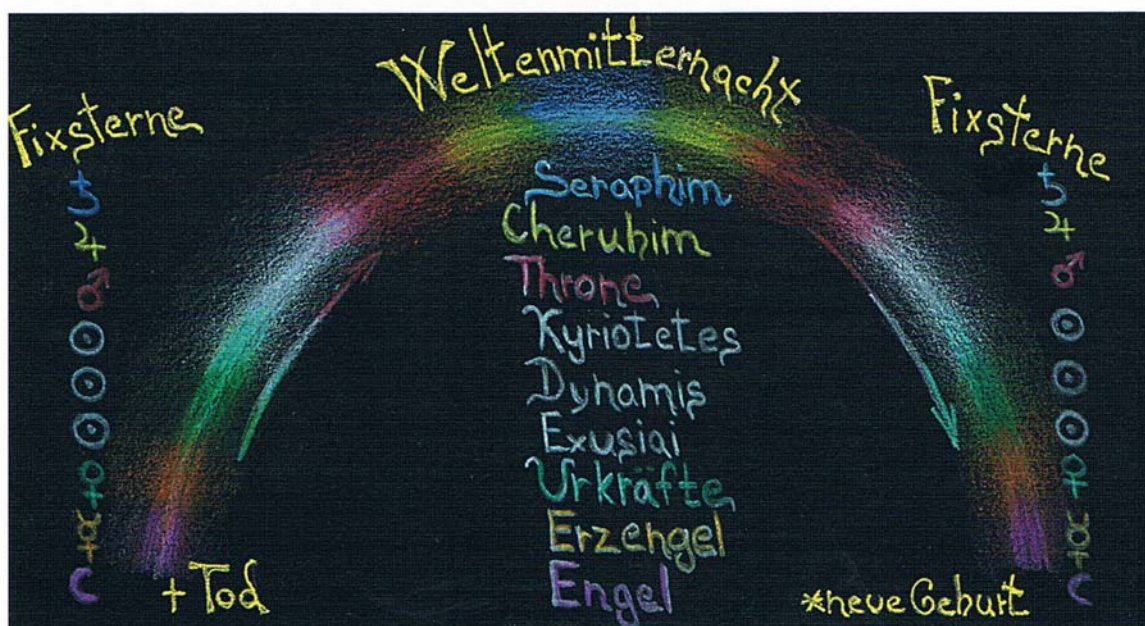 Weltenmitternacht
Fixsterne
♄
♃
♂
☉
☉
☉
♀
☿
☾
Seraphim
Cherubim
Throne
Kyriotetes
Dynamis
Exusiai
Urkräfte
Erzengel
Engel
Fixsterne
♄
♃
♂
☉
☉
☉
♀
☿
☾
+ Tod
*neue Geburt